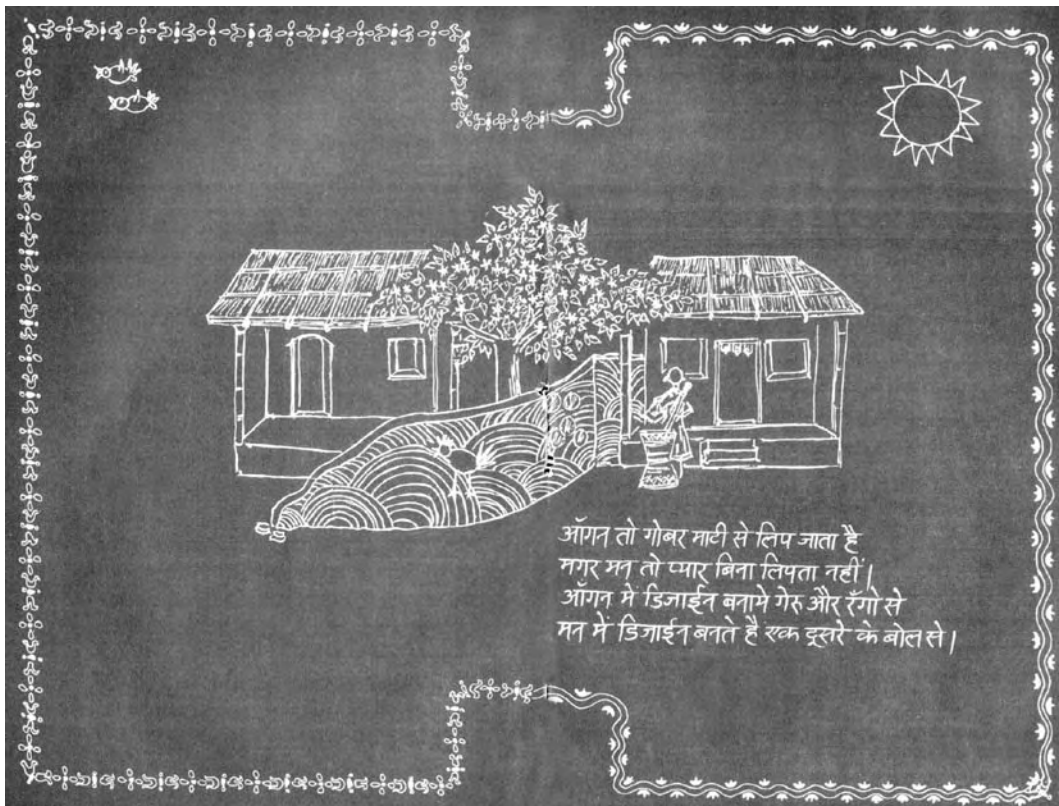 आँगन तो गोबर माटी से लिप जाता है
मगर मन तो प्यार बिना लिपता नहीं।
आँगन में डिजाईन बनाये गेरू और रँगो से
मन में डिजाईन बनते है एक दूसरे के बोल से।